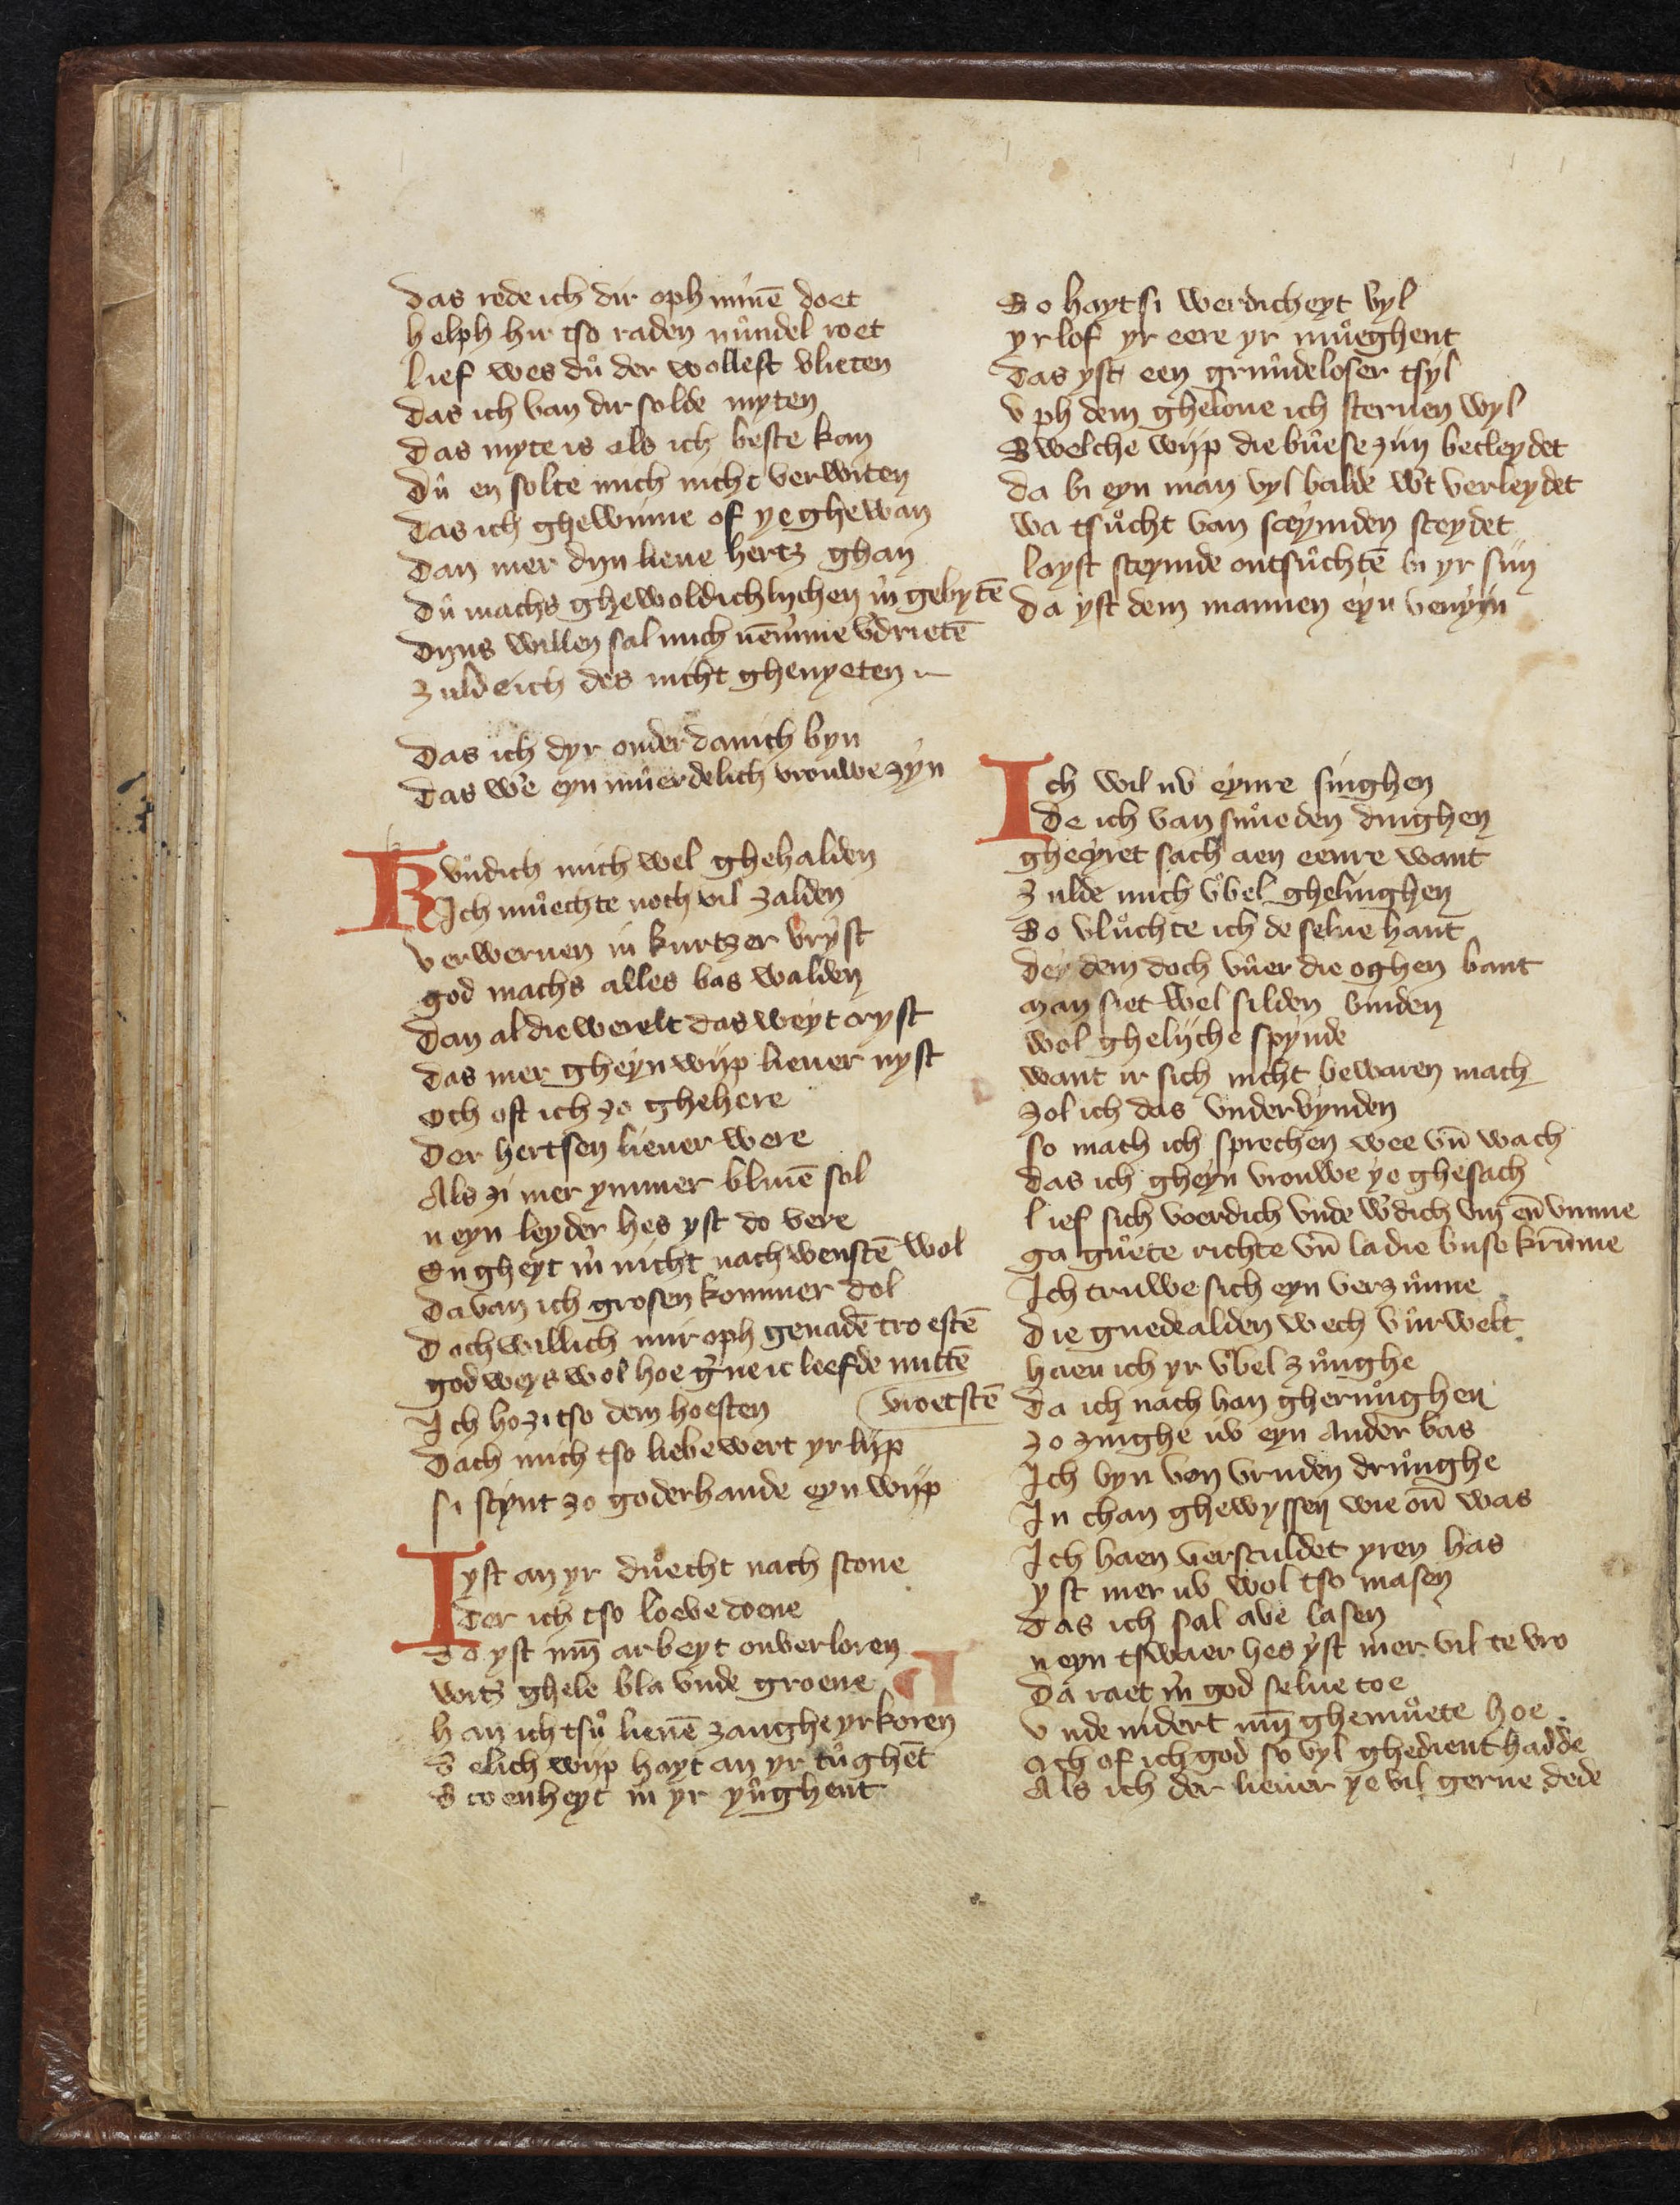 Das rede ich dir oph minē doet
helph hir tso raden mu̇ndel roet
lief wes du̇ der wollest vlieten
Das ich van dir solde myten
Das myte is als ich beste kan
Du̇ en solte mich nicht verwiten
Das ich ghewinne of ye ghewan
Dan mer dyn lieue hertz ghan
Du̇ machs ghewoldichlychen gebytē
Dyns willen sal mich nēmme vdrietē
Zulde ich des nicht ghenyeten
Das ich dyr onderdanich byn
Das we eyn mu̇erdelich vrouwe zyn
Ku̇dich mich wel ghehalden
Ich mu̇echte noch vil zalden
verweruen in kurtzer vryst
god machs alles bas walden
Dan al die werelt das weyt cryst
Das mer gheyn wijp lieuer nyst
Och oft ich zo ghehere
Der hertsen lieuer were
Als zi mer ymmer bliuē sol
neyn leyder hes yst do vere
En gheyt nicht nach wenstē wol
Da van ich grosen kommer dol
Doch willich mir oph genadē troestē
god weys wol hoe gne ic leefde mittē
vroetstē
Ich ho zi tso dem hoesten
Dach mich tso liebe wert yr lijp
si scynt zo goderhande eyn wijp
Iyst an yr du̇echt nach scone
Der ich tso loeve doene
So yst min arbeyt onverloren
wits ghele bla vnde groene
han ich tsu̇ lieuē zanghe yrkoren
Selich wijp hayt an yr tu̇ghēt
Scoenheyt in yr yu̇ghent
So hayt si werdicheyt vyl
yr lof yr eere yr mu̇eghent
Das yst een gru̇ndeloser tsyl
vph dem ghelove ich steruen wyl
Swelche wijp die bu̇ese zin becleydet
da bi eyn man vyl balde wt verleydet
wa tsu̇cht van sceymden sceydet
layst sceymde ontsu̇chtē bi yr sijn
da yst dem mannen eyn venyin
Ich wil nv eynre singhen
De ich van smueden dinghen
gheyiet sach aen eenre want
Zulde mich vbel ghelinghen
So vlu̇chte ich de seluē hant
Dey dem doch vu̇er die oghen bant
man siet wel silden vinden
wol ghelijche spynde
want ir sich nicht bewaren mach
zol ich das vndervynden
so mach ich sprechen wee vn̄ wach
das ich gheyn vrouwe ye ghesach
lief sich voerdich vnde wdich vm en̄ vmme
ga gu̇ete richte vn̄ la die buse kru̅mme
Ich truwe sich eyn verzu̇nne
Die guede alden wech vu̇rwelt
haen ich yr vbel zu̇nghe
Da ich nach van gheru̇nghen
zo zinghe nv eyn ander bas
Ich byn von vruden dru̇nghe
In chan ghewyssen wie on̄ was
Ich haen versculdet yren has
yst mer nv wol tso masen
Das ich sal ave lasen
neyn tswaer hes yst mer vil te vro
Da raet god selue toe
vnde nidert min ghemu̇ete hoe
Och of ich god so vyl ghedient hadde
Als ich der lieuer ye vil gerne dede